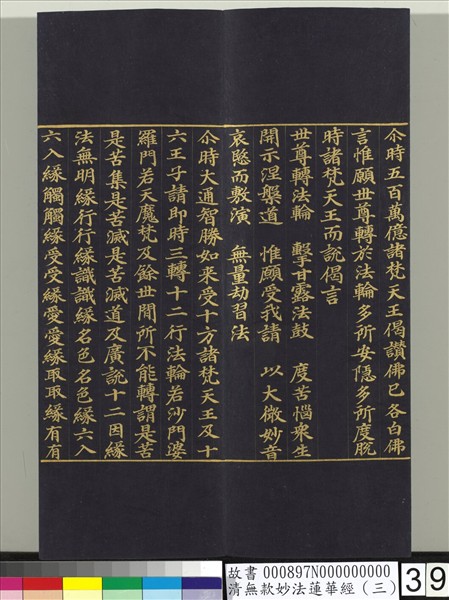 尒時五百萬億諸梵天王偈讚佛已各白佛
言惟願世尊轉於法輪多所安隱多所度脫
時諸梵天王而說偈言
世尊轉法輪　擊甘露法鼓　度苦惱眾生
開示涅槃道　惟願受我請　以大微妙音
哀愍而敷演　無量劫習法
尒時大通智勝如來受十方諸梵天王及十
六王子請即時三轉十二行法輪若沙門婆
羅門若天魔梵及餘世間所不能轉謂是苦
是苦集是苦滅是苦滅道及廣說十二因緣
法無明緣行行緣識識緣名色名色緣六入
六入緣觸觸緣受受緣愛愛緣取取緣有有
故書 000897N000000000
清無款妙法蓮華經（三）
39